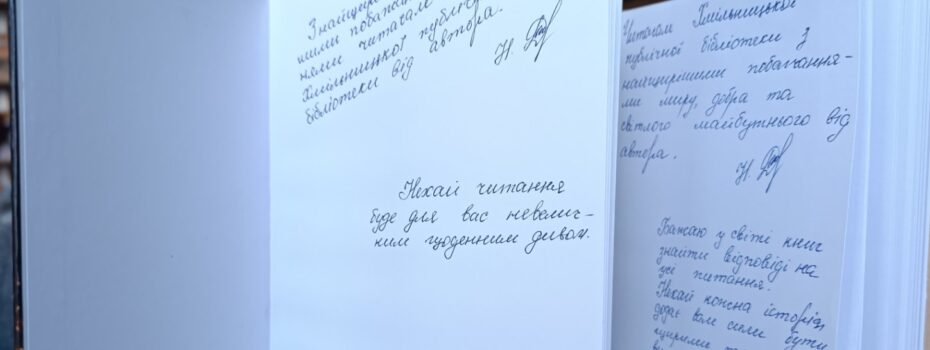 З найщирі-
шими побажан-
нями читачам
Хмільницької публічної
бібліотеки від автора.
Н.
Нехай читання
буде для вас невелич-
ким щоденним дивом.
Читачам Хмільницької
публічної бібліотеки з
найщирішими побажання-
ми миру, добра та
світлого майбутнього від
автора.
Н.
Бажаю у світі книг
знайти відповіді на
усі питання.
Нехай кожна історія
додає вам сили бути
щирими